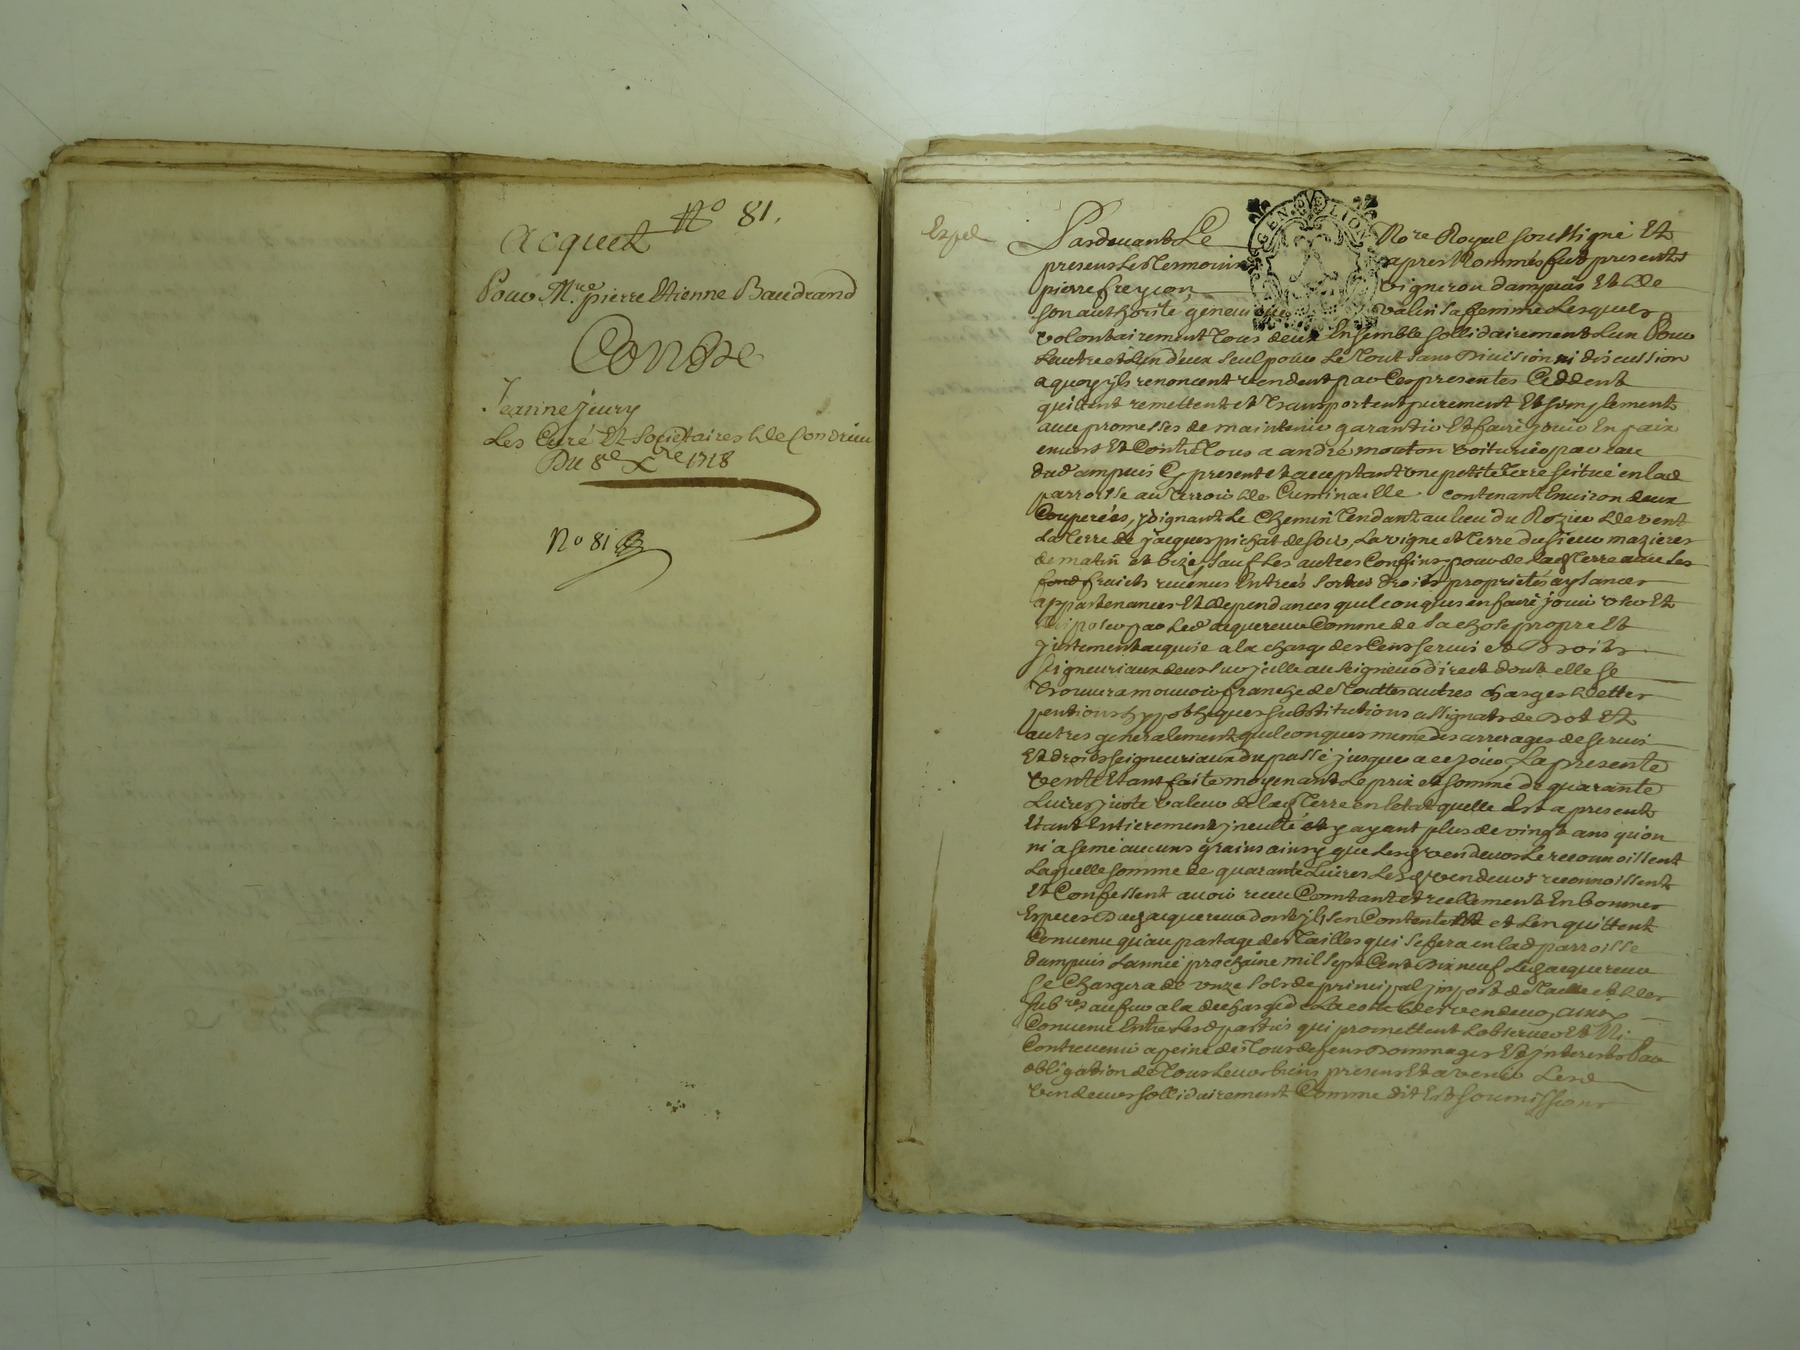 No 81.
Acquet
Pour Mre pierre Etienne Baudrand
Contre
Jeanne jeury
Les Curé Et Societaires de Condrieu
Du 8e Xbre 1718
No 81
Expedié
Pardevant Le No.re Royal soussigné Et
presens Les tesmoins apres Nommes fut present
pierre freycon vigneron dampuis Et de
son authorité valin sa femme Lesquels
volontairement tous deux Ensemble sollidairement Lun Pour
Lautre et Lun d'eux seul pour Le tout sans Division ni discussion
a quoy ils renoncent vendent par Ces presentes Ceddent
quittent remettent et transportent purement Et simplement
avec promesses de maintenir garantir Et faire jouir En paix
envers Et Contre tous a andré mouton voiturier par eau
dud ampuis Cy present et acceptant une petite terre scituée en lad
parroisse au terroir de Cuminaille contenant Environ deux
Couperées, joignant Le Chemin tendant au lieu du Rozier de vent
La terre de jacques pichat de soir, La vigne et terre du sieur mazieres
de matin et bize, sauf Les autres Confins pour de lad terre avec Les
fond fruits revenus Entrées sorties droits proprietés aysances
appartenances Et dependances quelconques en faire jouir user Et
disposer par Led acquereur Comme de sa chose propre Et
justement acquise a la charge des Cens servis et Droits
seigneuriaux deus sur jcelle au seigneur direct dont elle se
trouvera mouvoir franche de touttes autres charges dettes
pentions hypotheques substitutions assignats de Dot Et
autres generalement quelconques meme des arrerages de servis
Et droits seigneuriaux du passé jusques a ce jour La presente
vente Etant faite moyenant Le prix et somme de quarante
Livres juste valeur de lad terre en letat quelle Est a present
Etant Entierement jnculte et y ayant plus de vingt ans qu'on
ni a semé aucuns grains ainsy que Lesd vendeurs Le reconnoissent
Laquelle somme de quarante Livres Lesd vendeurs reconnoissent
Et Confessent avoir receu Comtant et reellement En bonnes
Especes Dud acquereur dont jls sen Contentent et Len quittent
Convenu qu'au partage des tailles qui se fera en lad parroisse
dampuis Lannée prochaine mil sept Cent Dix neuf Led acquereur
se Chargera de onze sols de principal jmpost de taille et des
sub.res au fur a la decharge de La cotte des vendeurs, ainsy
Convenu Entre Lesd parties qui promettent Lobserver Et Ni
Contrevenir a peine de tous depens Dommages Et jnterests Par
obligation de tous Leurs biens presens Et a venir Lesd
vendeurs sollidairement Comme dit Est soumissions